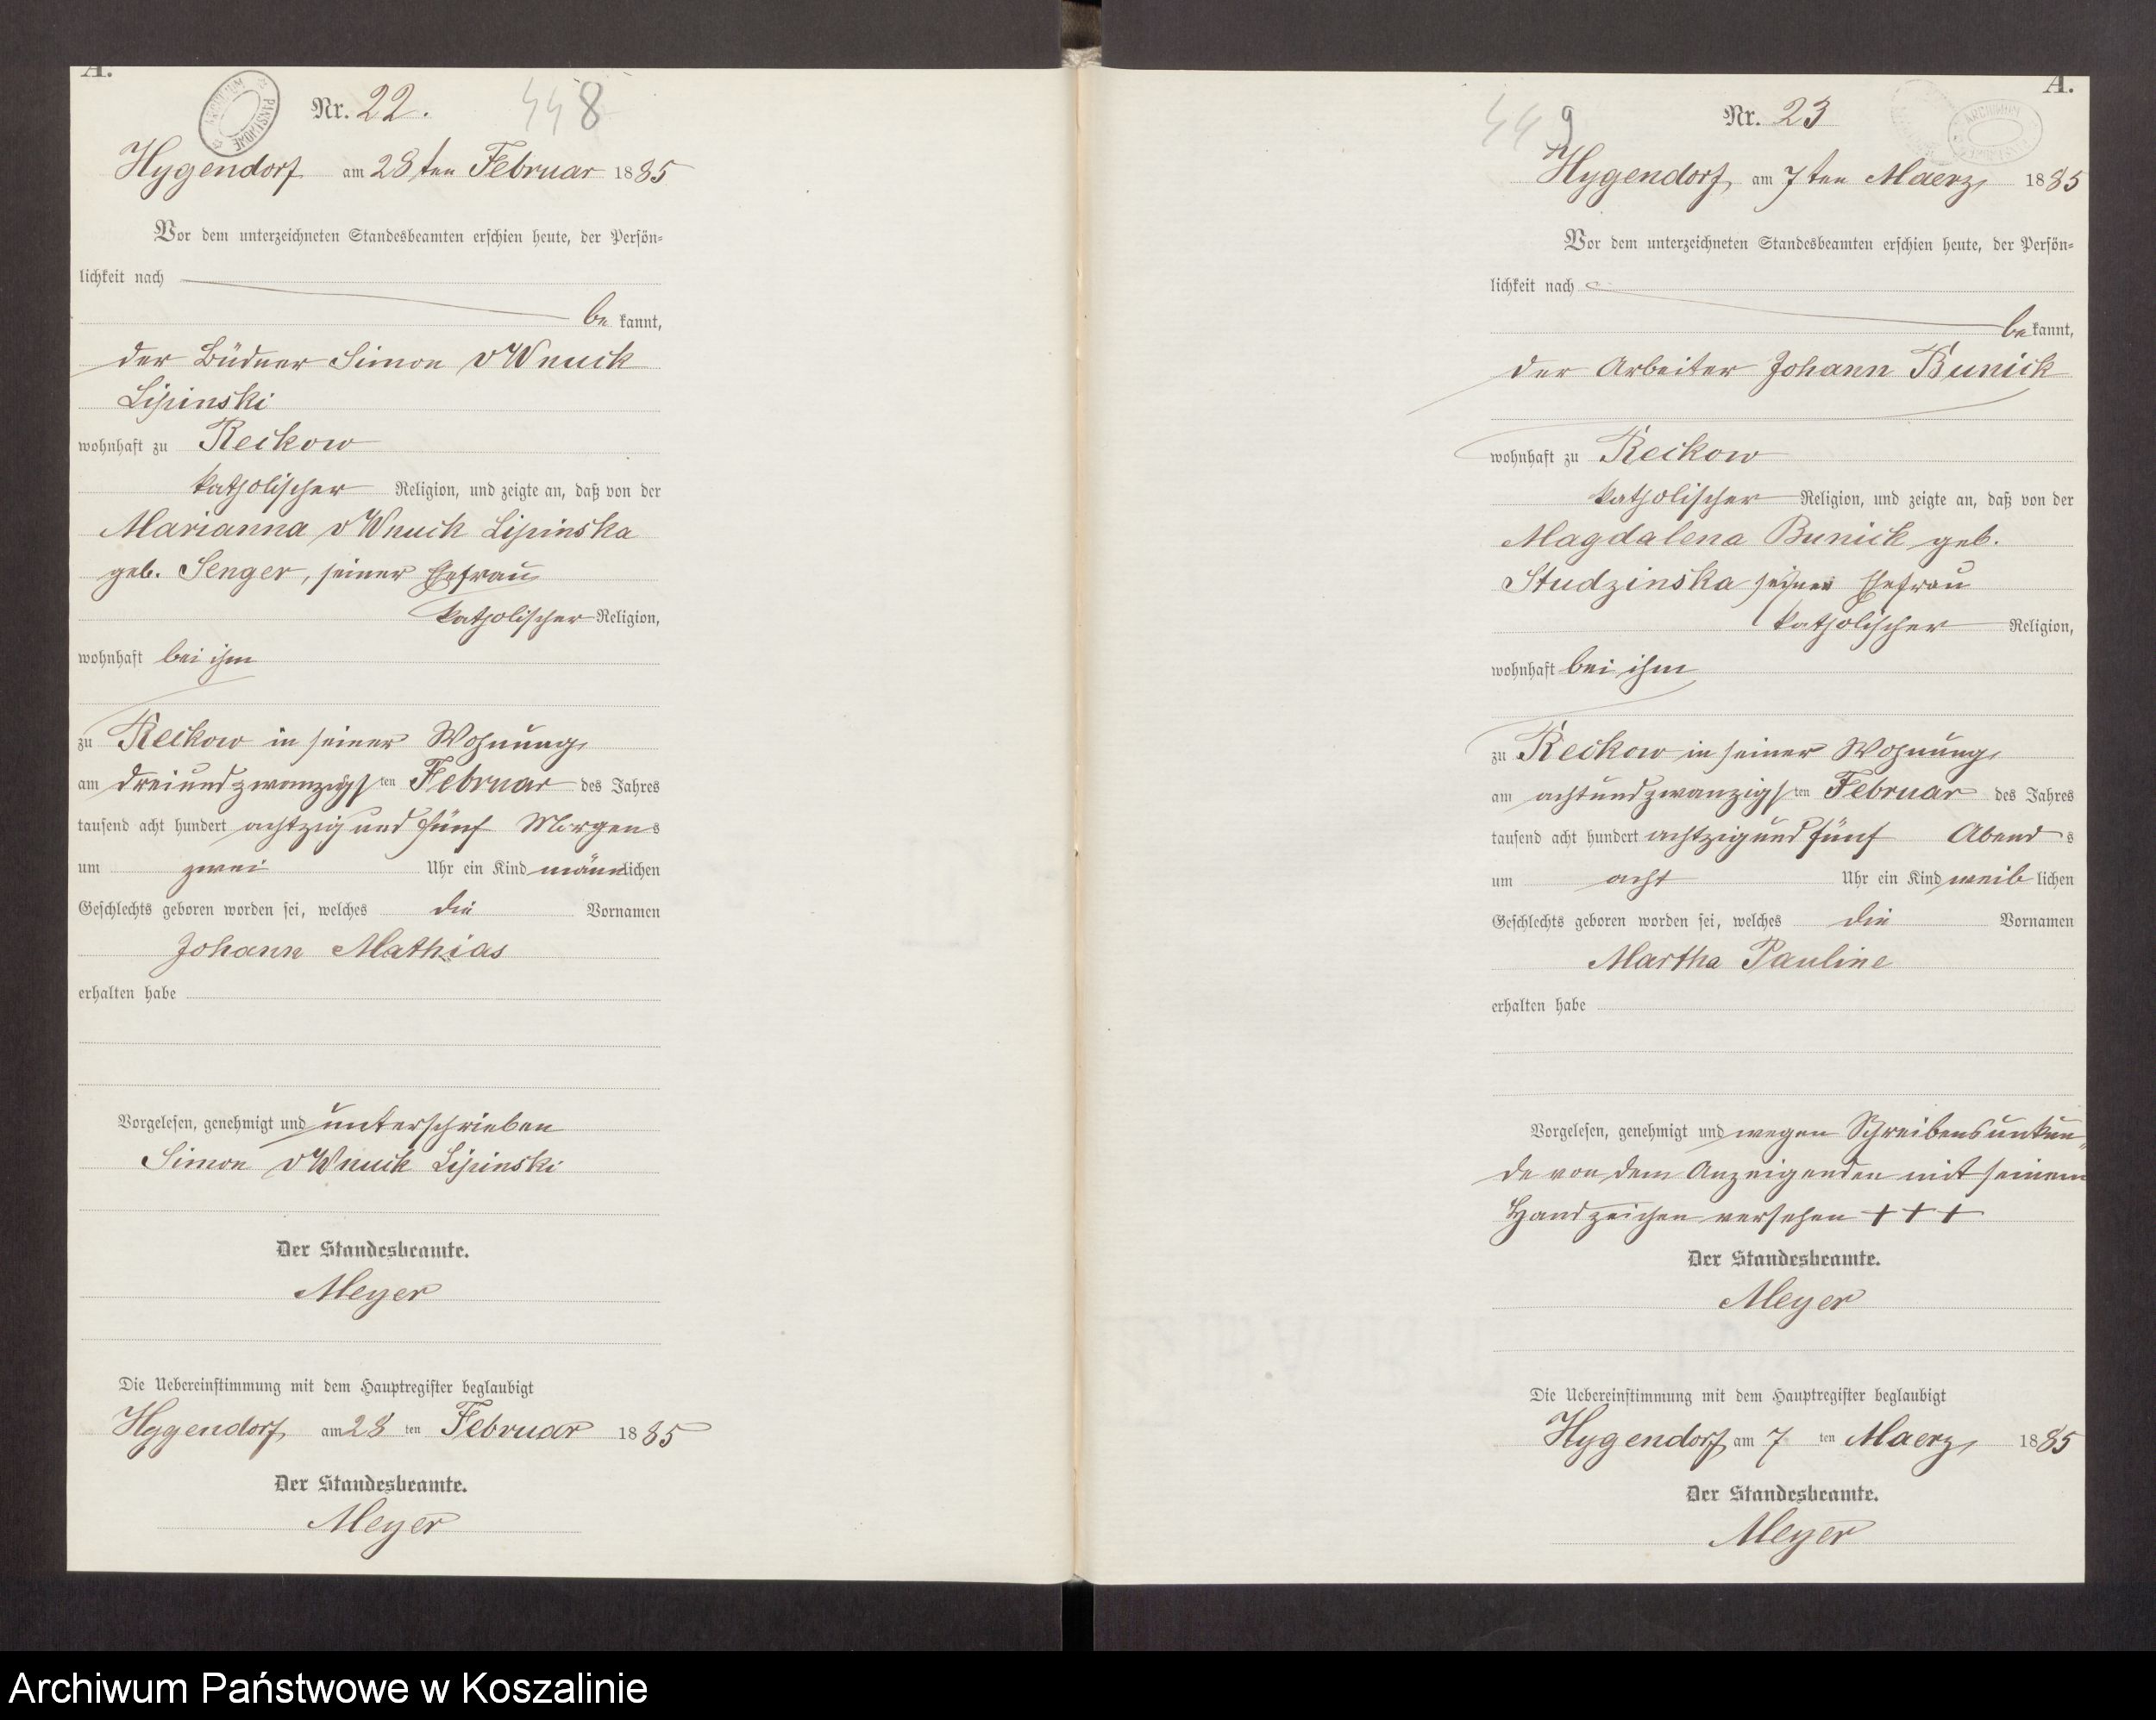 A.
ARCHIWUM PAŃSTWOWE
Nr. 22.
448
Hygendorf am 28ten Februar 1885
Vor dem unterzeichneten Standesbeamten erschien heute, der Persön-
lichkeit nach
be kannt,
der Büdner Simon v Wnuck
Lipinski
wohnhaft zu Reckow
katholischer Religion, und zeigte an, daß von der
Marianna v Wnuck Lipinska
geb. Senger, seiner Ehefrau
katholischer Religion,
wohnhaft bei ihm
zu Reckow in seiner Wohnung,
am dreiundzwanzigsten Februar des Jahres
tausend acht hundert achtzig und fünf Morgens
um zwei Uhr ein Kind männlichen
Geschlechts geboren worden sei, welches die Vornamen
Johann Mathias
erhalten habe
Vorgelesen, genehmigt und unterschrieben
Simon v Wnuck Lipinski
Der Standesbeamte.
Meyer
Die Uebereinstimmung mit dem Hauptregister beglaubigt
Hygendorf, am 28 ten Februar 1885
Der Standesbeamte.
Meyer
A.
449
Nr. 23
ARCHIWUM PAŃSTWOWE
Hygendorf, am 7ten Maerz, 1885
Vor dem unterzeichneten Standesbeamten erschien heute, der Persön-
lichkeit nach
be kannt,
der Arbeiter Johann Bunick
wohnhaft zu Reckow
katholischer Religion, und zeigte an, daß von der
Magdalena Bunick geb.
Studzinska seiner Ehefrau
katholischer Religion,
wohnhaft bei ihm
zu Reckow in seiner Wohnung,
am achtundzwanzigsten Februar des Jahres
tausend acht hundert achtzig und fünf Abend s
um acht Uhr ein Kind weib lichen
Geschlechts geboren worden sei, welches die Vornamen
Martha Pauline
erhalten habe
Vorgelesen, genehmigt und wegen Schreibensunkun-
de von dem Anzeigenden mit seinem
Handzeichen versehen + + +
Der Standesbeamte.
Meyer
Die Uebereinstimmung mit dem Hauptregister beglaubigt
Hygendorf, am 7 ten Maerz, 1885
Der Standesbeamte.
Meyer
Archiwum Państwowe w Koszalinie